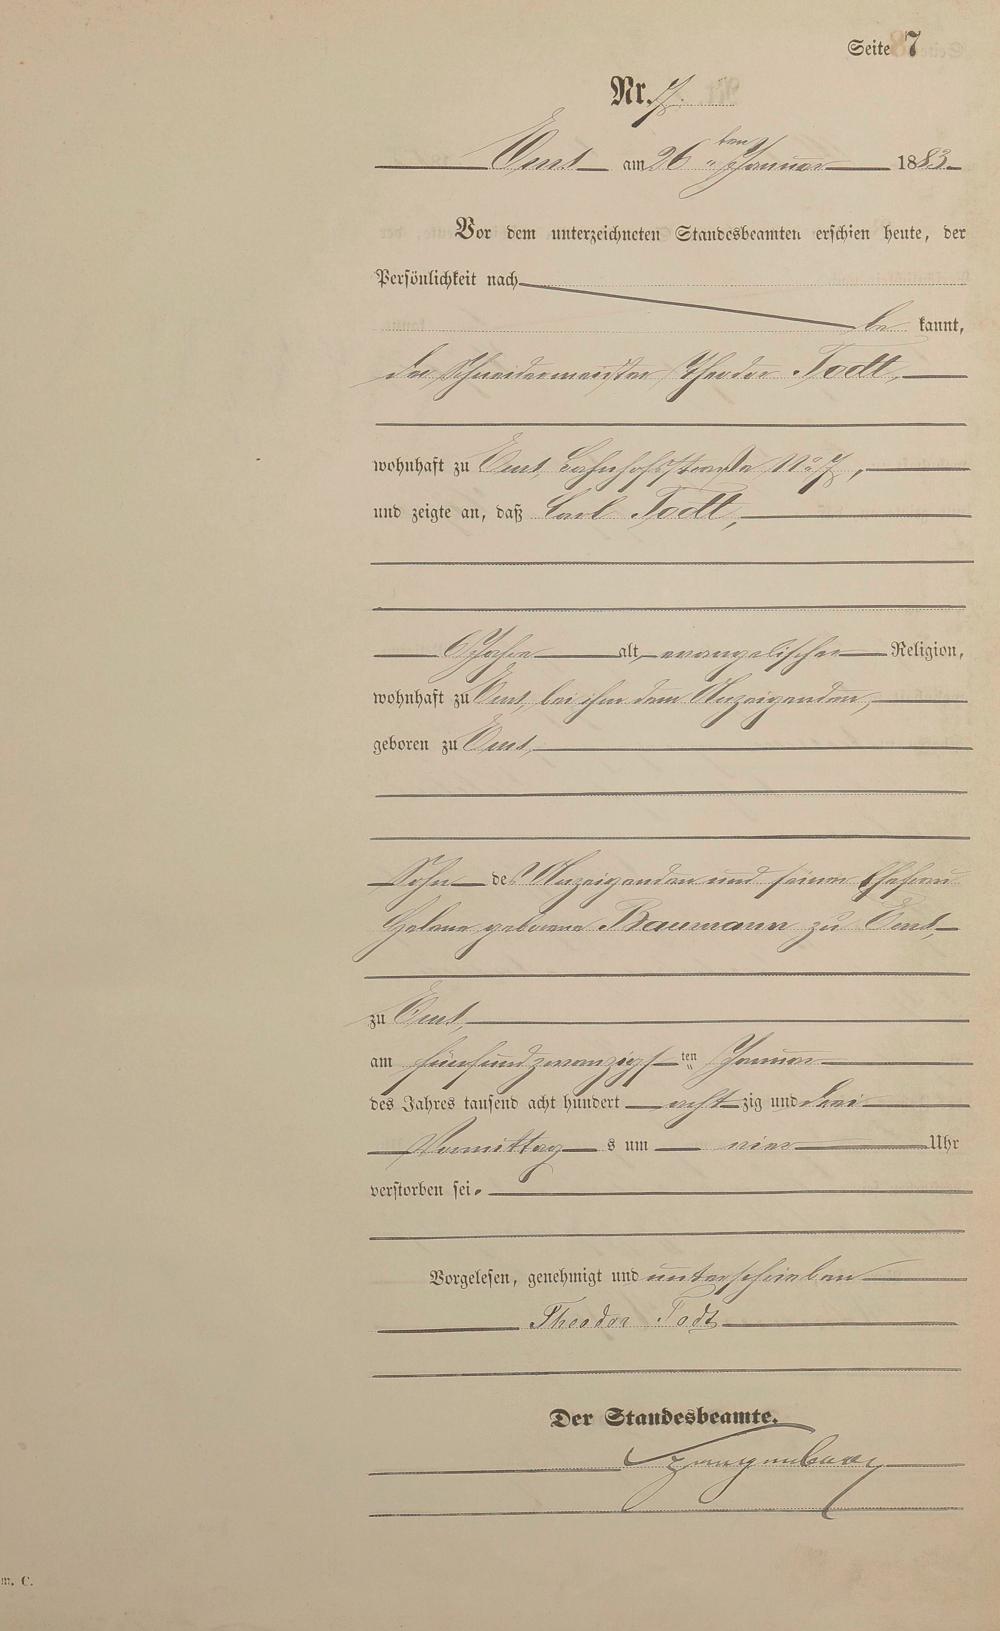 Seite 7
Nr. 7.
Ems am 26 ten Januar 1883.
Vor dem unterzeichneten Standesbeamten erschien heute, der
Persönlichkeit nach
be kannt,
der Schneidermeister Theodor Todt,
wohnhaft zu Ems, Bahnhofsstraße No 7,
und zeigte an, daß Carl Todt,
6 Jahre alt, evangelischer Religion,
wohnhaft zu Ems, bei ihm dem Anzeigenden,
geboren zu Ems,
Sohn des Anzeigenden und seiner Ehefrau
Helene geborene Baumann zu Ems,
zu Ems,
am fünfundzwanzigs ten Januar
des Jahres tausend acht hundert acht zig und drei
Vormittag s um vier Uhr
verstorben sei.
Vorgelesen, genehmigt und unterschrieben
Theodor Todt
Der Standesbeamte.
m. C.